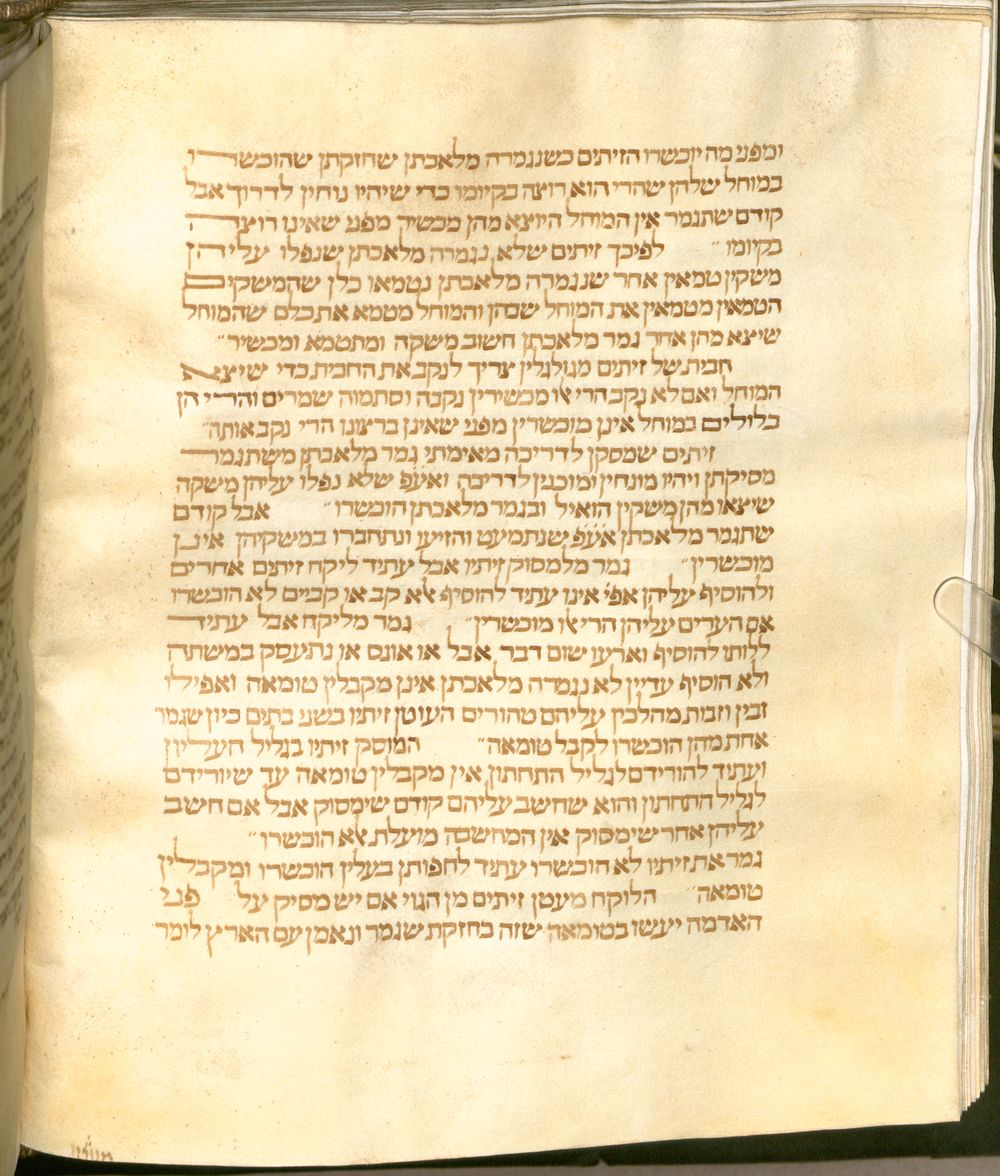 ומפני מה יוכשרו הזיתים כשנגמרה מלאכתן שחזקתן שהוכשרו
במוחל שלהן שהרי הוא רוצה בקיומו כדי שיהיו נוחין לדרוך אבל
קודם שתגמר אין המוחל היוצא מהן מכשיר מפני שאינו רוצה
בקיומו״ לפיכך זיתים שלא נגמרה מלאכתן שנפלו עליהן
משקין טמאין אחר שנגמרה מלאכתן נטמאו כלן שהמשקים
הטמאין מטמאין את המוחל שבהן והמוחל מטמא את כלם שהמוחל
שיצא מהן אחר גמר מלאכתן חשוב משקה ומתטמא ומכשיר״
חבית של זיתים מגולגלין צריך לנקב את החבית כדי שיצא
המוחל ואם לא נקב הרי אלו מכשירין נקבה וסתמוה שמרים והרי הן
בלולים במוחל אינן מוכשרין מפני שאינן ברצונו הרי נקב אותה״
זיתים שמסקן לדריכה מאימתי גמר מלאכתן משתגמר
מסיקתן ויהיו מונחין ומוכנין לדריכה ואעפ שלא נפלו עליהן משקה
שיצאו מהן משקין הואיל ובגמר מלאכתן הוכשרו״ אבל קודם
שתגמר מלאכתן אעפ שנתמעט והזיעו ונתחברו במשקיהן אינן
מוכשרין״ גמר מלמסוק זיתיו אבל עתיד ליקח זיתים אחרים
ולהוסיף עליהן אפי׳ אינו עתיד להוסיף אלא קב או קבים לא הוכשרו
אם הערים עליהן הרי אלו מוכשרין״ גמר מליקח אבל עתיד
ללותו להוסיף וארעו שום דבר אבל או אונס או נתעסק במשתה
ולא הוסיף עדיין לא נגמרה מלאכתן אינן מקבלין טומאה ואפילו
זבין וזבות מהלכין עליהם טהורים העוטן זיתיו בשני בתים כיון שגמר
אחת מהן הוכשרו לקבל טומאה״ המוסק זיתיו בגליל העליון
ועתיד להורידם לגליל התחתון אין מקבלין טומאה עד שיורידם
לגליל התחתון והוא שחשב עליהם קודם שימסוק אבל אם חשב
עליהן אחר שימסוק אין המחשבה מועלת אלא הוכשרו״
גמר את זיתיו לא הוכשרו עתיד לחפותן בעלין הוכשרו ומקבלין
טומאה״ הלוקח מעטן זיתים מן הגוי אם יש מסיק על פני
האדמה ייעשו בטומאה שזה בחזקת שגמר ונאמן עם הארץ לומר